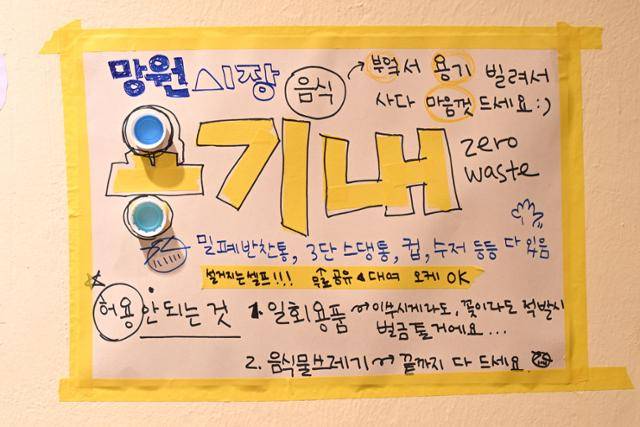 망원시장 음식
부엌서 용기 빌려서
사다 마음껏 드세요:)
용기내
zero
waste
밀폐반찬통, 3단 스댕통, 컵, 수저 등등 다 있음
설거지는 셀프!!! 무료 공유 대여 오케 OK
허용 안 되는 것
1. 일회용품 이쑤시개라도, 꽃이라도 적발시
벌금 물 거에요...
2. 음식물쓰레기 끝까지 다 드세요